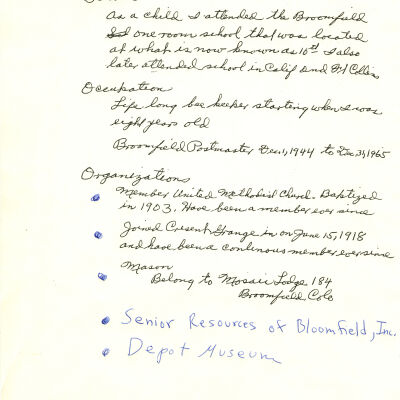 As a child I attended the Broomfield
one room school that was located
at what is now known as 10th I also
later attended school in Calif and Ft Collins
Occupation
Life long bee keeper starting when I was
eight years old
Broomfield Postmaster Dec, 1, 1944 to Dec 31, 1965
Organizations
Member United Methodist Church. Baptized
in 1903. Have been a member ever since
Joined Cresent Grange in on June 15, 1918
and have been a continous member ever since
Mason
Belong to Mosaic Lodge 184
Broomfield Colo
Senior Resources of Bloomfield, Inc.
Depot Museum